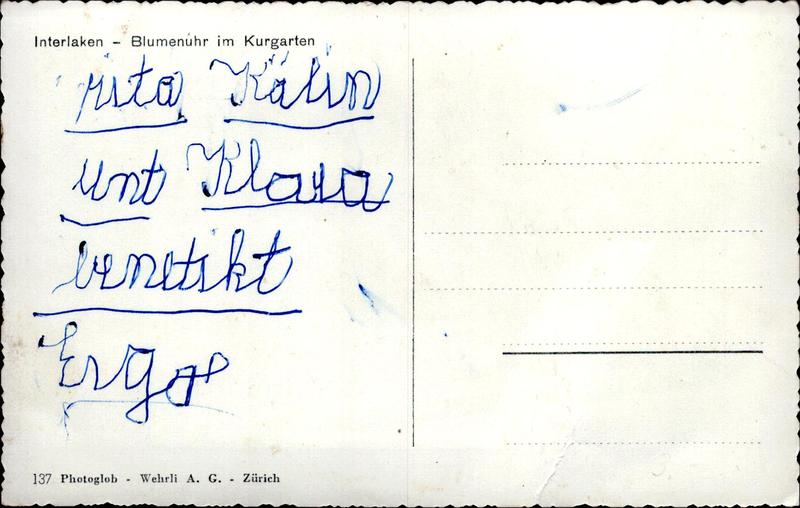 Interlaken – Blumenuhr im Kurgarten
rita Kälin
unt Klara
benetikt
137 Photoglob - Wehrli A. G. - Zürich